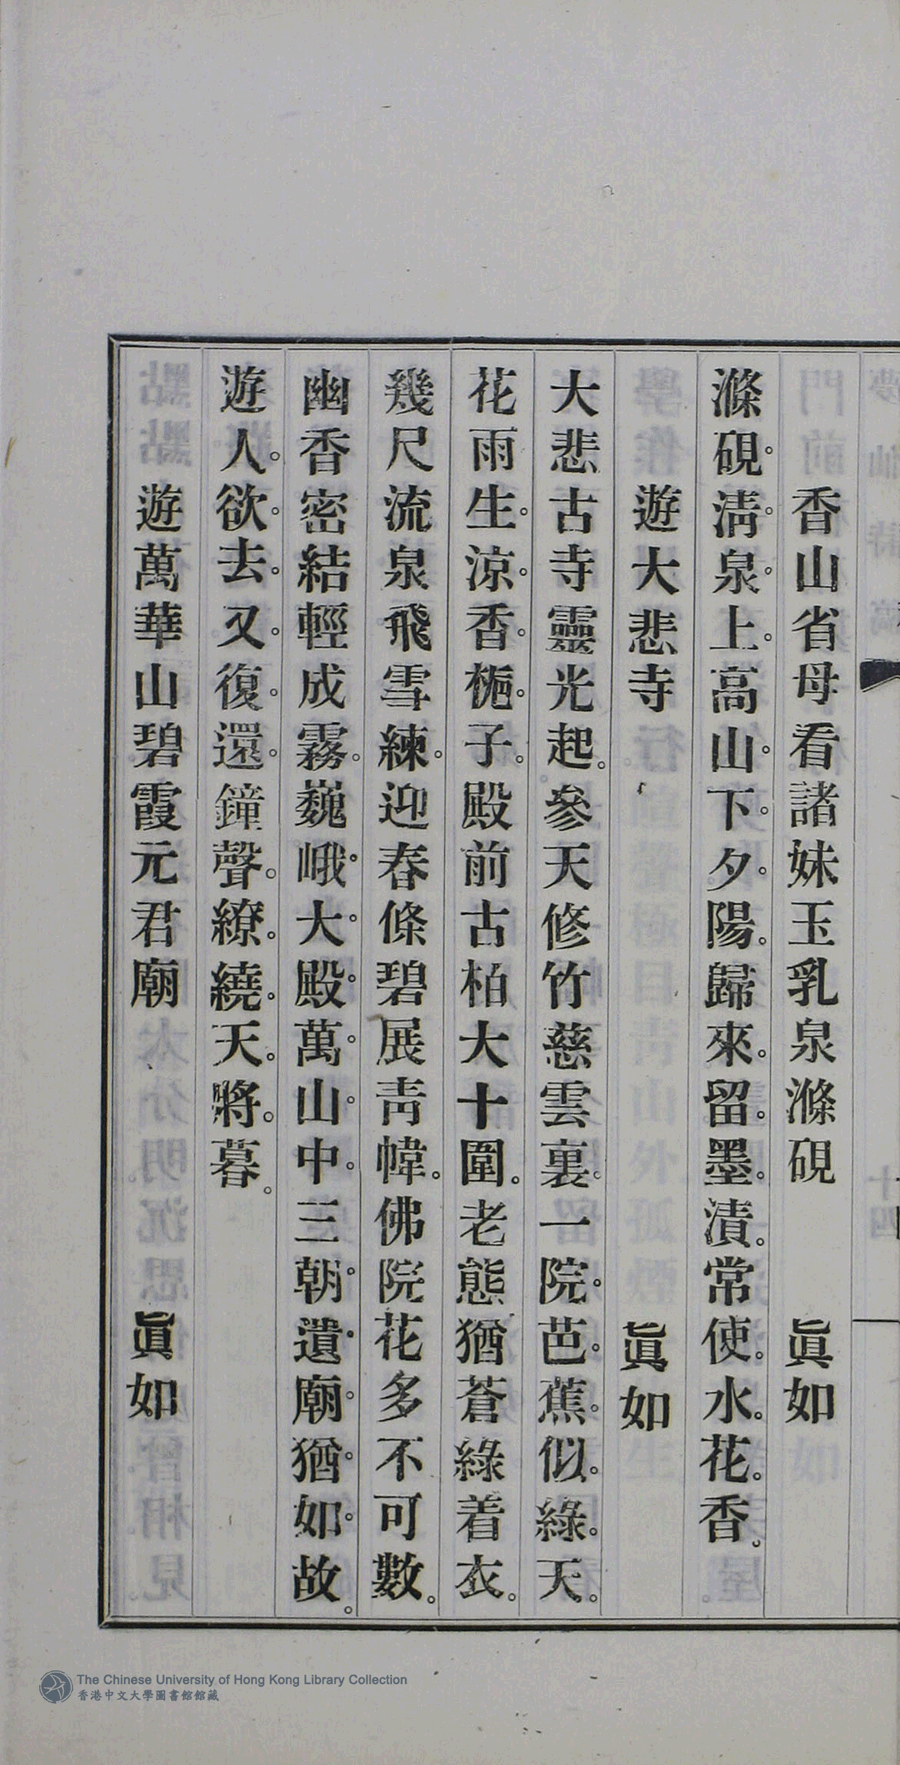 香山省母看諸妹玉乳泉滌硯　眞如
滌硯。清。泉。上。高山。下。夕。陽。歸來。留。墨。漬。常使。水。花。香。
遊大悲寺　眞如
大悲古寺靈光起。參天修竹慈雲裏。一院。芭。蕉。似。綠。天。
花雨生。涼。香。梔。子。殿前古柏大十圍。老態猶蒼綠着衣。
幾尺流泉飛雪練。迎春條碧展靑幃。佛院花多不可數。
幽香密結輕成霧。巍峨。大。殿。萬。山。中。三朝。遺。廟。猶。如。故。
遊人。欲。去。又。復。還。鐘聲。繚。繞。天。將。暮。
遊萬華山碧霞元君廟　眞如
十四
The Chinese University of Hong Kong Library Collection
香港中文大學圖書館館藏